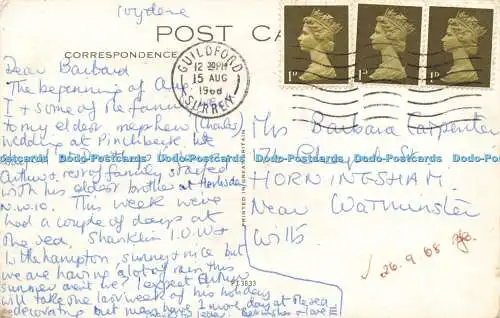 Ivydene
POST CA
CORRESPONDENCE
GUILDFORD
12 PM
15 AUG
1968
SURREY
1D
1D
1D
Dear Barbara
The beginning of Aug
I & some of the family
to my eldest nephew (Charles)
wedding at Pinchbeck. We
Arthur & rest of family stayed
with his eldest brother at
N.W.10. This week we've
had a couple of days at
the sea. Shanklin I.O.W &
Littlehampton, sunny & nice but
we are having a lot of rain this
summer
will take the last week of his holiday
decorating but may have 1 more day at the sea
Mrs Barbara Carpenter
St
HORNINGSHAM.
Near Warminster
Wilts
26.9.68
PRINTED IN GREAT BRITAIN
PT3833
Dodo-Postcards Dodo-Postcards Dodo-Postcards Dodo-Postcards Dodo-Postcards